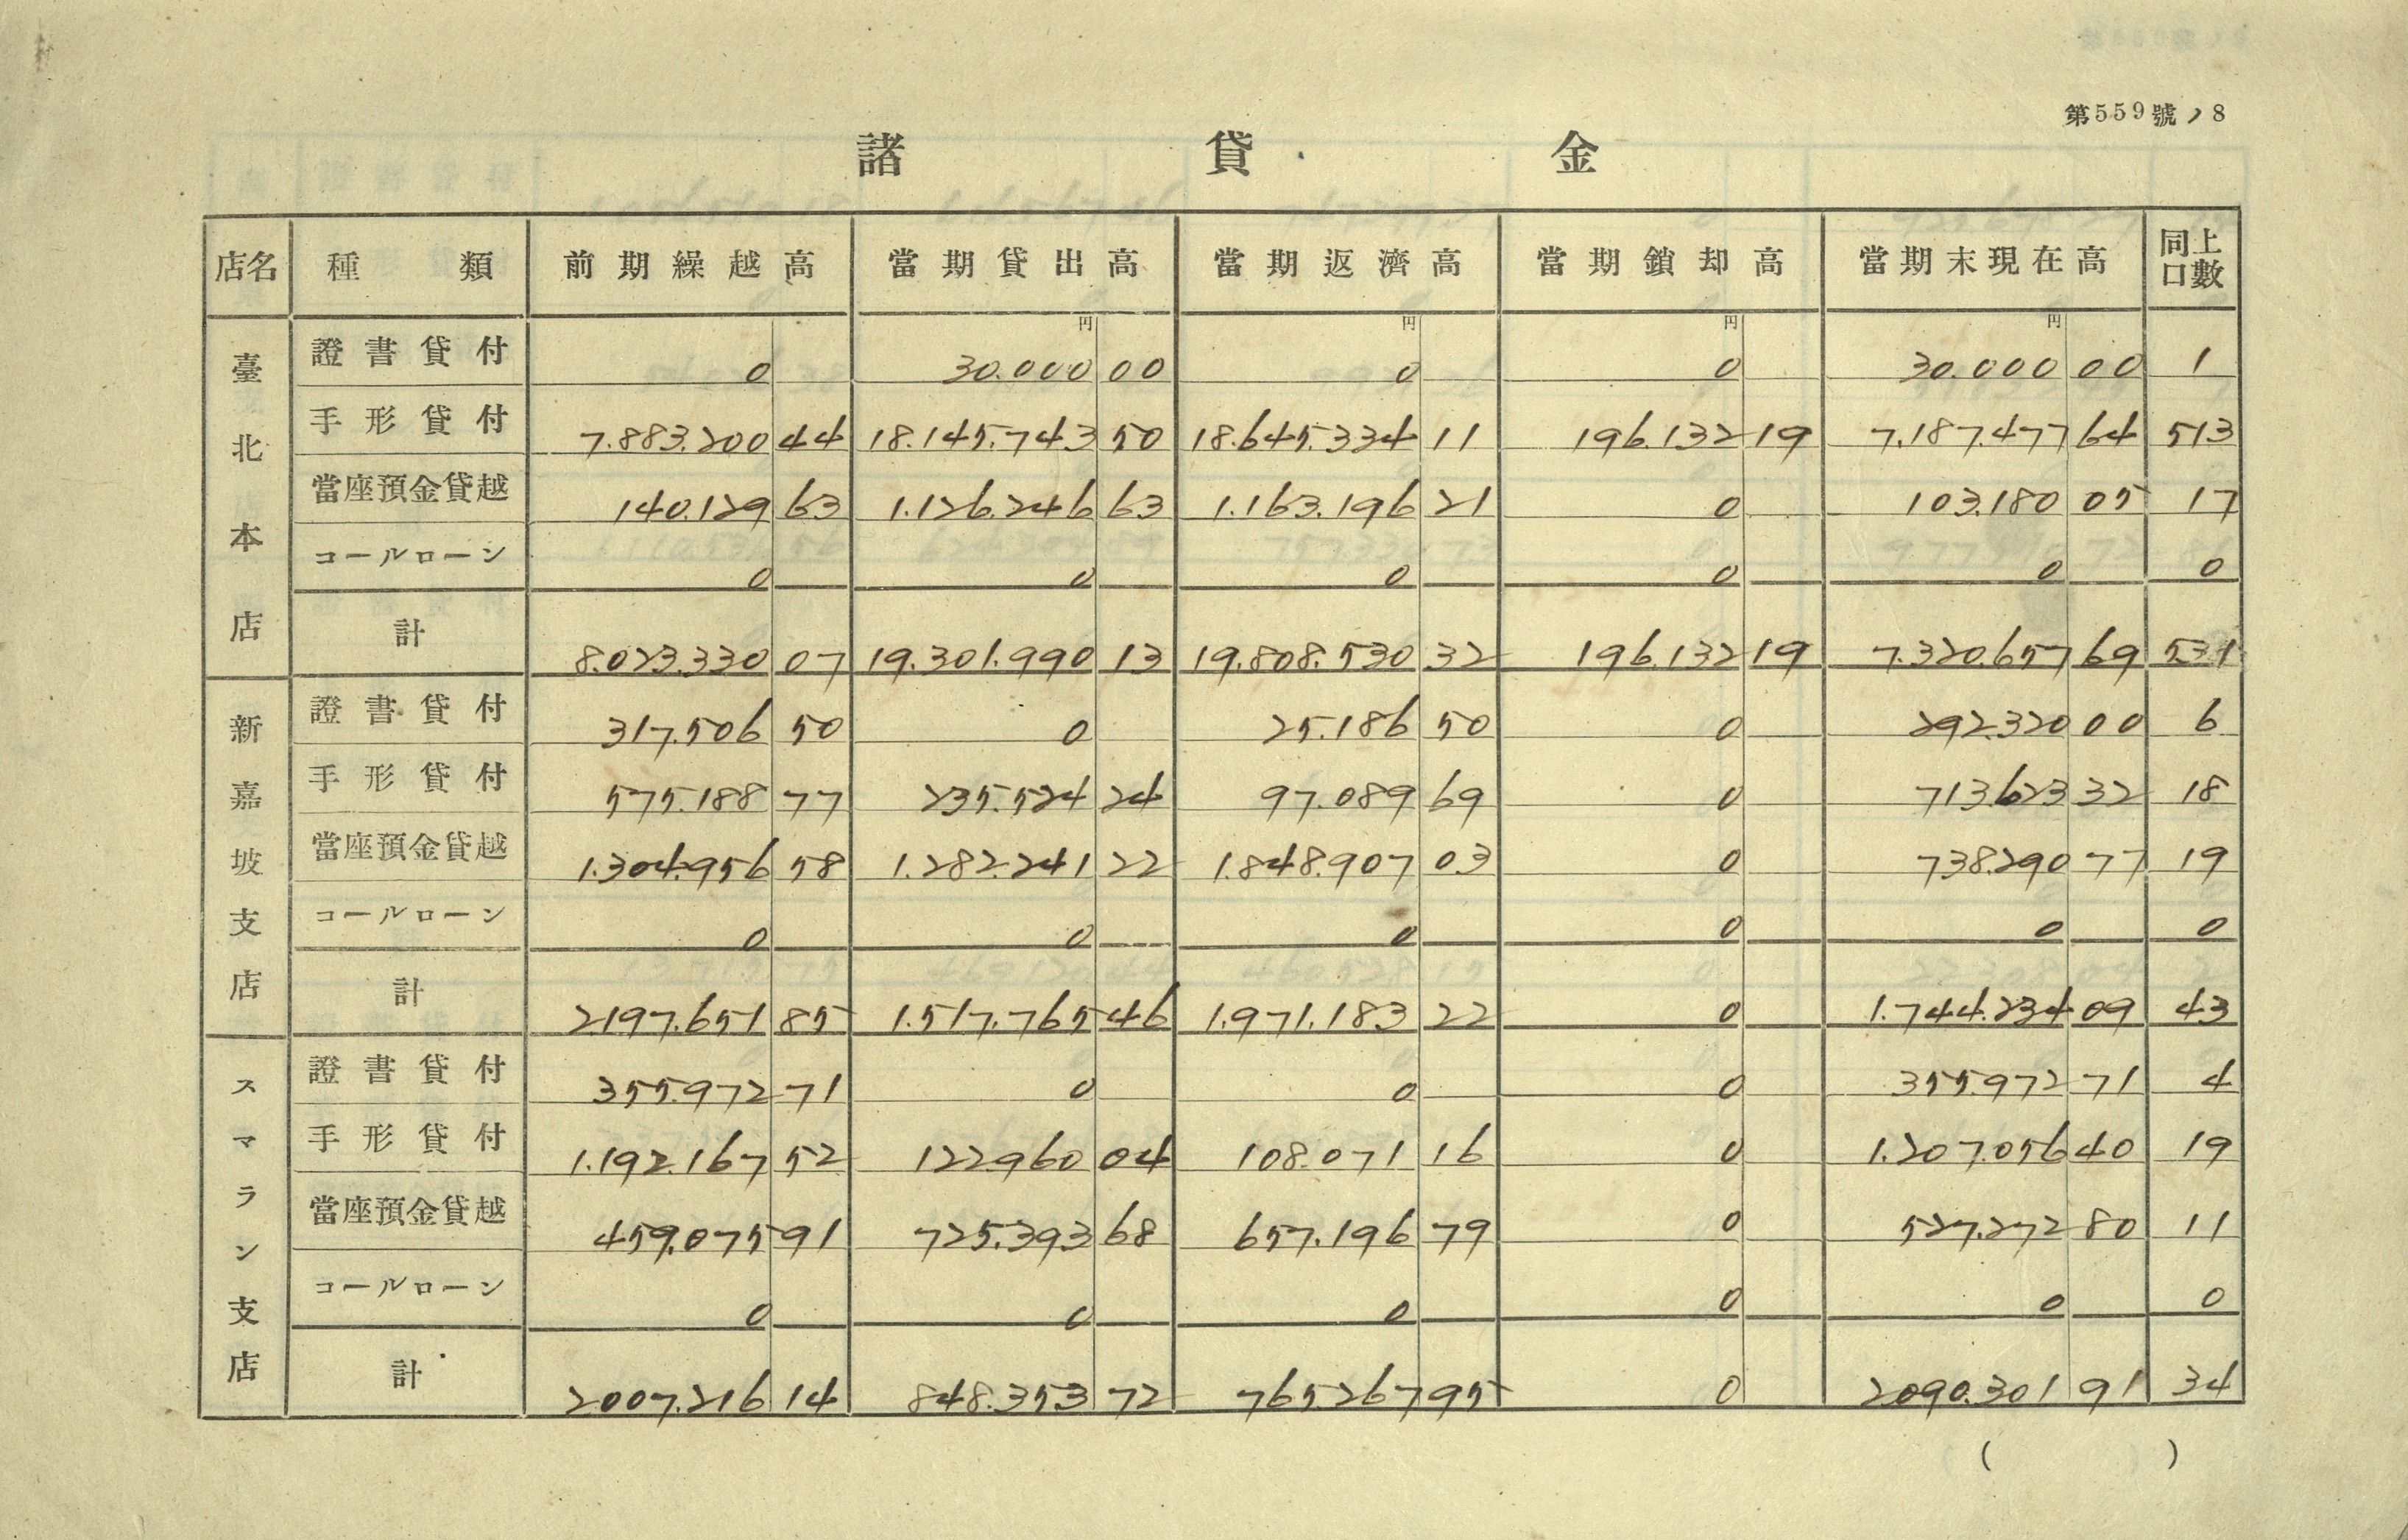 第559號ノ8
諸貸金
店名 種類 前期繰越高 當期貸出高 當期返濟高 當期鎖却高 當期末現在高 同上口數
円 円 円 円
臺北本店
證書貸付 0 30.000 00 0 0 30.000 00 1
手形貸付 7.883.200 44 18.145.743 50 18.645.334 11 196.132 19 7.187.477 64 513
當座預金貸越 140.129 63 1.126.246 63 1.163.196 21 0 103.180 05 17
コールローン 0 0 0 0 0 0
計 8.023.330 07 19.301.990 13 19.808.530 32 196.132 19 7.320.657 69 531
新嘉坡支店
證書貸付 317.506 50 0 25.186 50 0 292.320 00 6
手形貸付 575.188 77 235.524 24 97.089 69 0 713.623 32 18
當座預金貸越 1.304.956 58 1.282.241 22 1.848.907 03 0 738.290 77 19
コールローン 0 0 0 0 0 0
計 2.197.651 85 1.517.765 46 1.971.183 22 0 1.744.234 09 43
スマラン支店
證書貸付 355.972 71 0 0 0 355.972 71 4
手形貸付 1.192.167 52 122.960 04 108.071 16 0 1.207.056 40 19
當座預金貸越 459.075 91 725.393 68 657.196 79 0 527.272 80 11
コールローン 0 0 0 0 0 0
計 2.007.216 14 848.353 72 765.267 95 0 2.090.301 91 34
( )